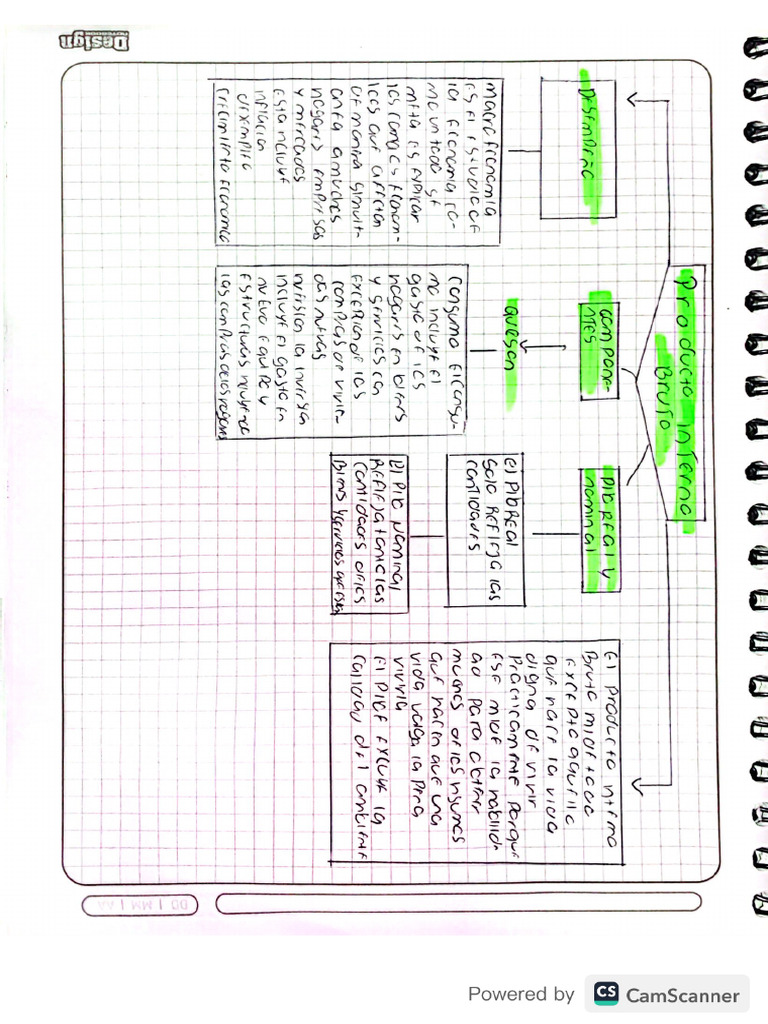 Producto interno
Bruto
Desempeño
macroeconomia
es el estudio de
la economia co-
mo un todo su
meta es explicar
los cambios econom-
icos que afectan
de manera simult-
anea a muchos
hogares empresas
y mercados
esta incluye
inflacion
desempleo
crecimiento economico
compone-
ntes
que son
consumo el consu-
mo incluye el
gasto de los
hogares en bienes
y servicios con
excepcion de las
compras de vivie-
das nuevas
inversion la inversion
incluye el gasto en
nuevo equipo y
estructuras incluye
las compras de los hogares
Pib real y
nominal
el Pib Real
solo refleja las
cantidades
El Pib nominal
refleja tanto las
cantidades de los
Bienes y servicios
El Producto interno
Bruto mide todo
excepto aquello
que hace la vida
digna de vivir
Practicamente porque
ese mide la habilid-
ad para obtener
muchos de los insumos
que hacen que una
vida valga la pena
vivirla
el PIB excluye la
calidad del ambiente
Design
DD | MM | AA
Powered by CS CamScanner